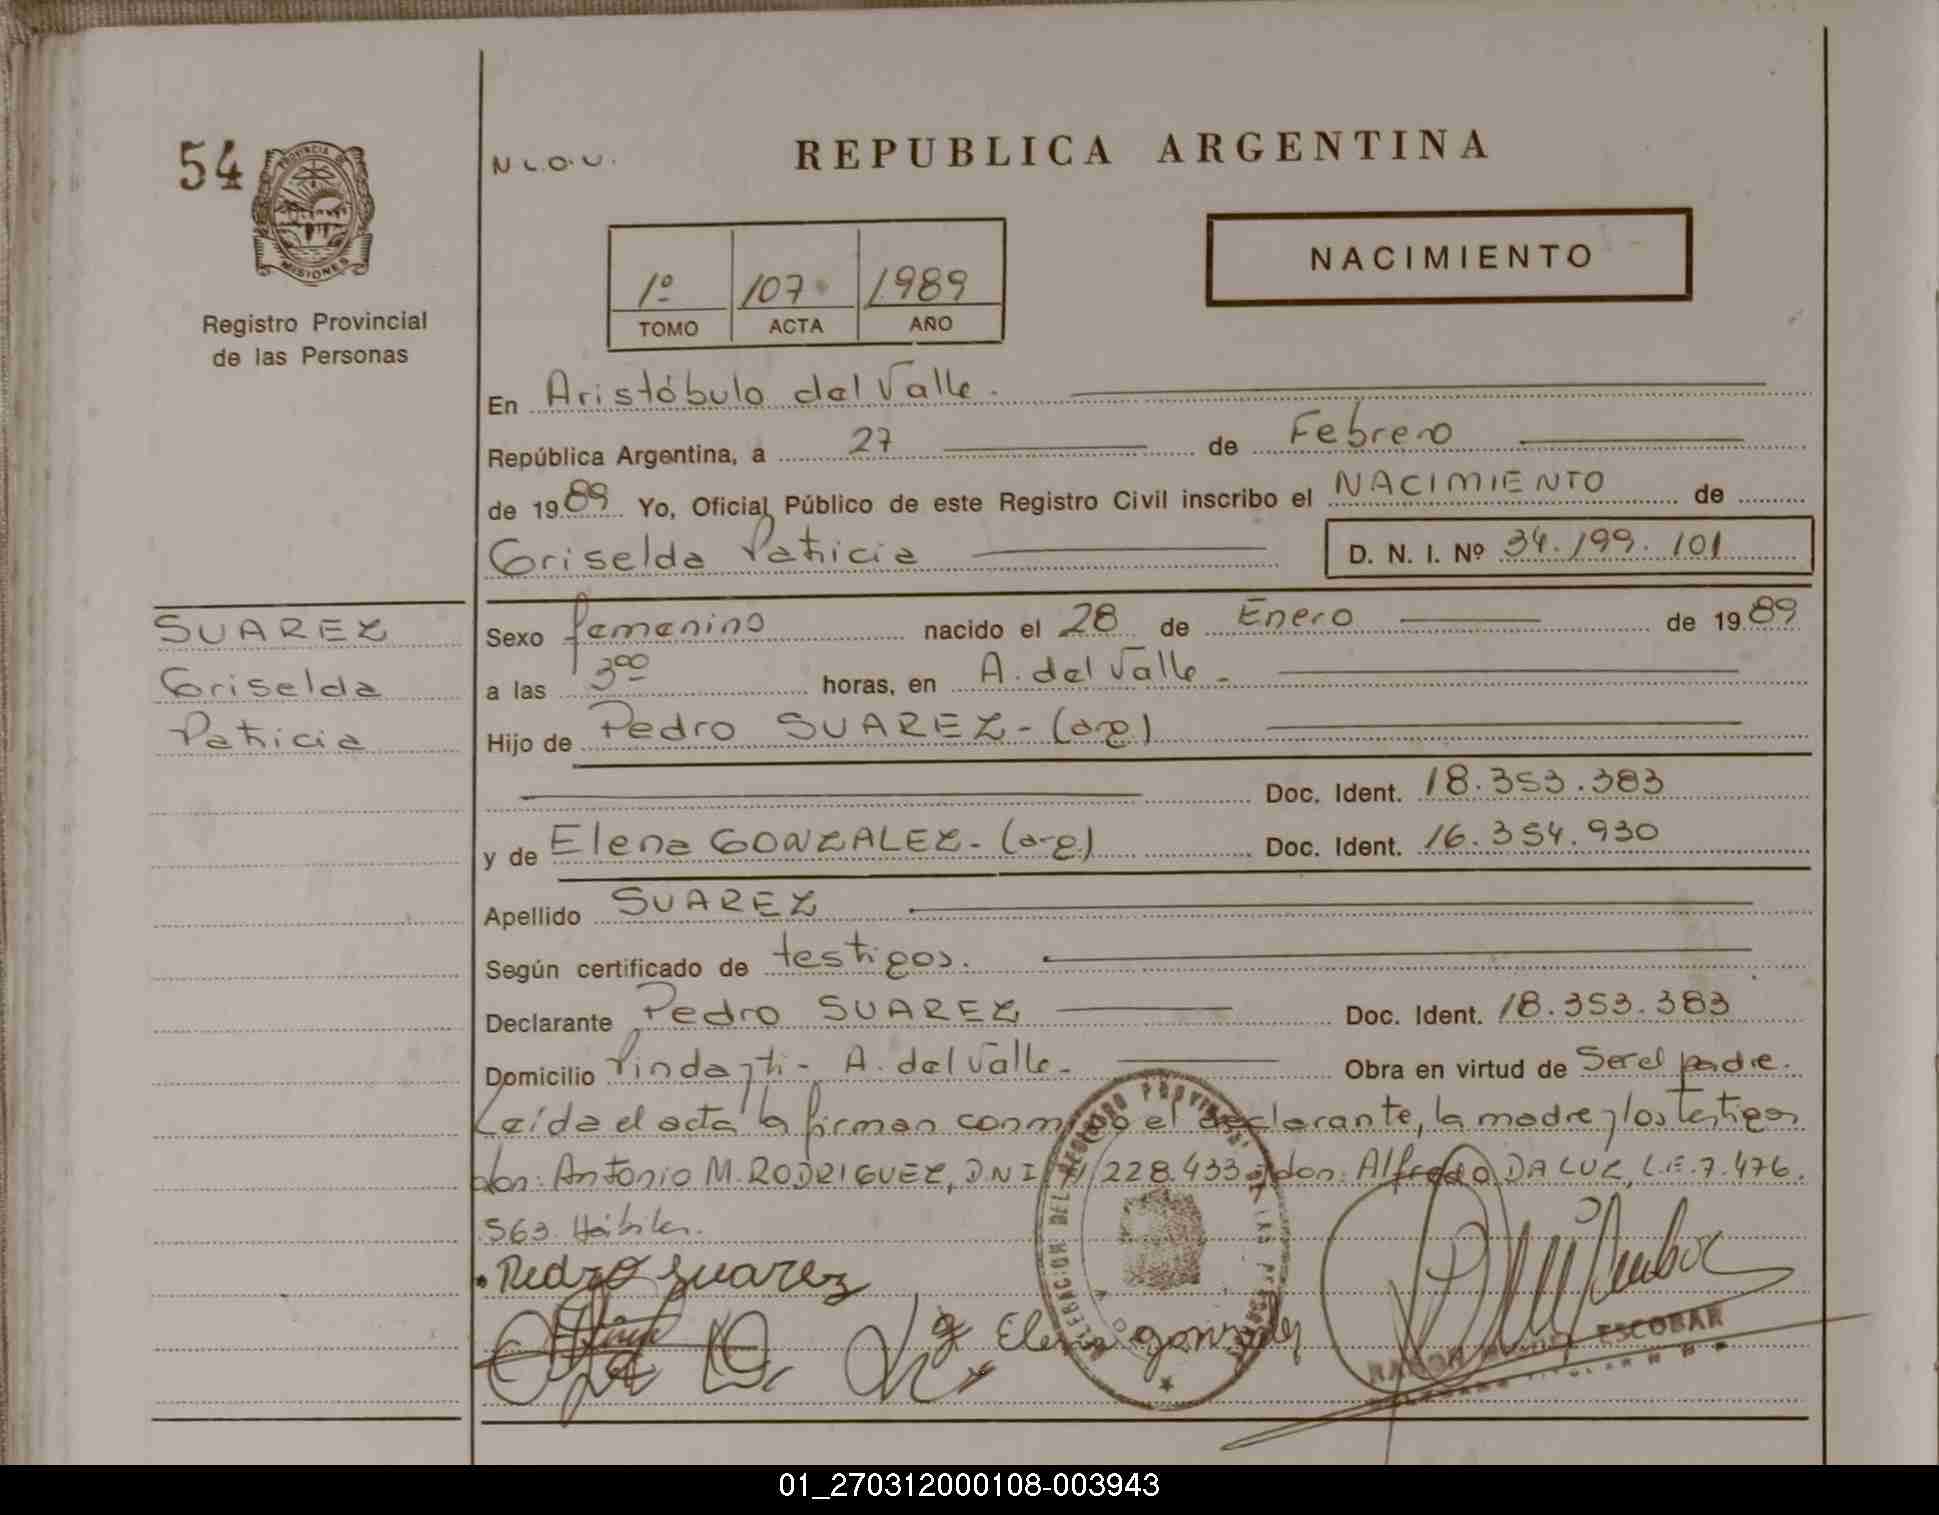 54
PROVINCIA DE
MISIONES
Registro Provincial
de las Personas
N L.O.U.
REPUBLICA ARGENTINA
1º 107 1989
TOMO ACTA AÑO
NACIMIENTO
En Aristóbulo del Valle.
República Argentina, a 27 de Febrero
de 1989 Yo, Oficial Público de este Registro Civil inscribo el NACIMIENTO de
Griselda Patricia D. N. I. Nº 34.199.101
SUAREZ
Griselda
Patricia
Sexo femenino nacido el 28 de Enero de 1989
a las 3⁰⁰ horas, en A. del Valle -
Hijo de Pedro SUAREZ - (arg)
Doc. Ident. 18.353.383
y de Elena GONZALEZ - (arg) Doc. Ident. 16.354.930
Apellido SUAREZ
Según certificado de testigos.
Declarante Pedro SUAREZ Doc. Ident. 18.353.383
Domicilio Pindayti - A. del Valle - Obra en virtud de Ser el padre.
Leída el acta la firman conmigo el declarante, la madre y los testigos
don: Antonio M. RODRIGUEZ, DNI 228.433 y don: Alfredo DA LUZ, L.E. 7.476.
563. Hábiles.
Pedro Suarez
Elena gonzalez
ESCOBAR
01_270312000108-003943